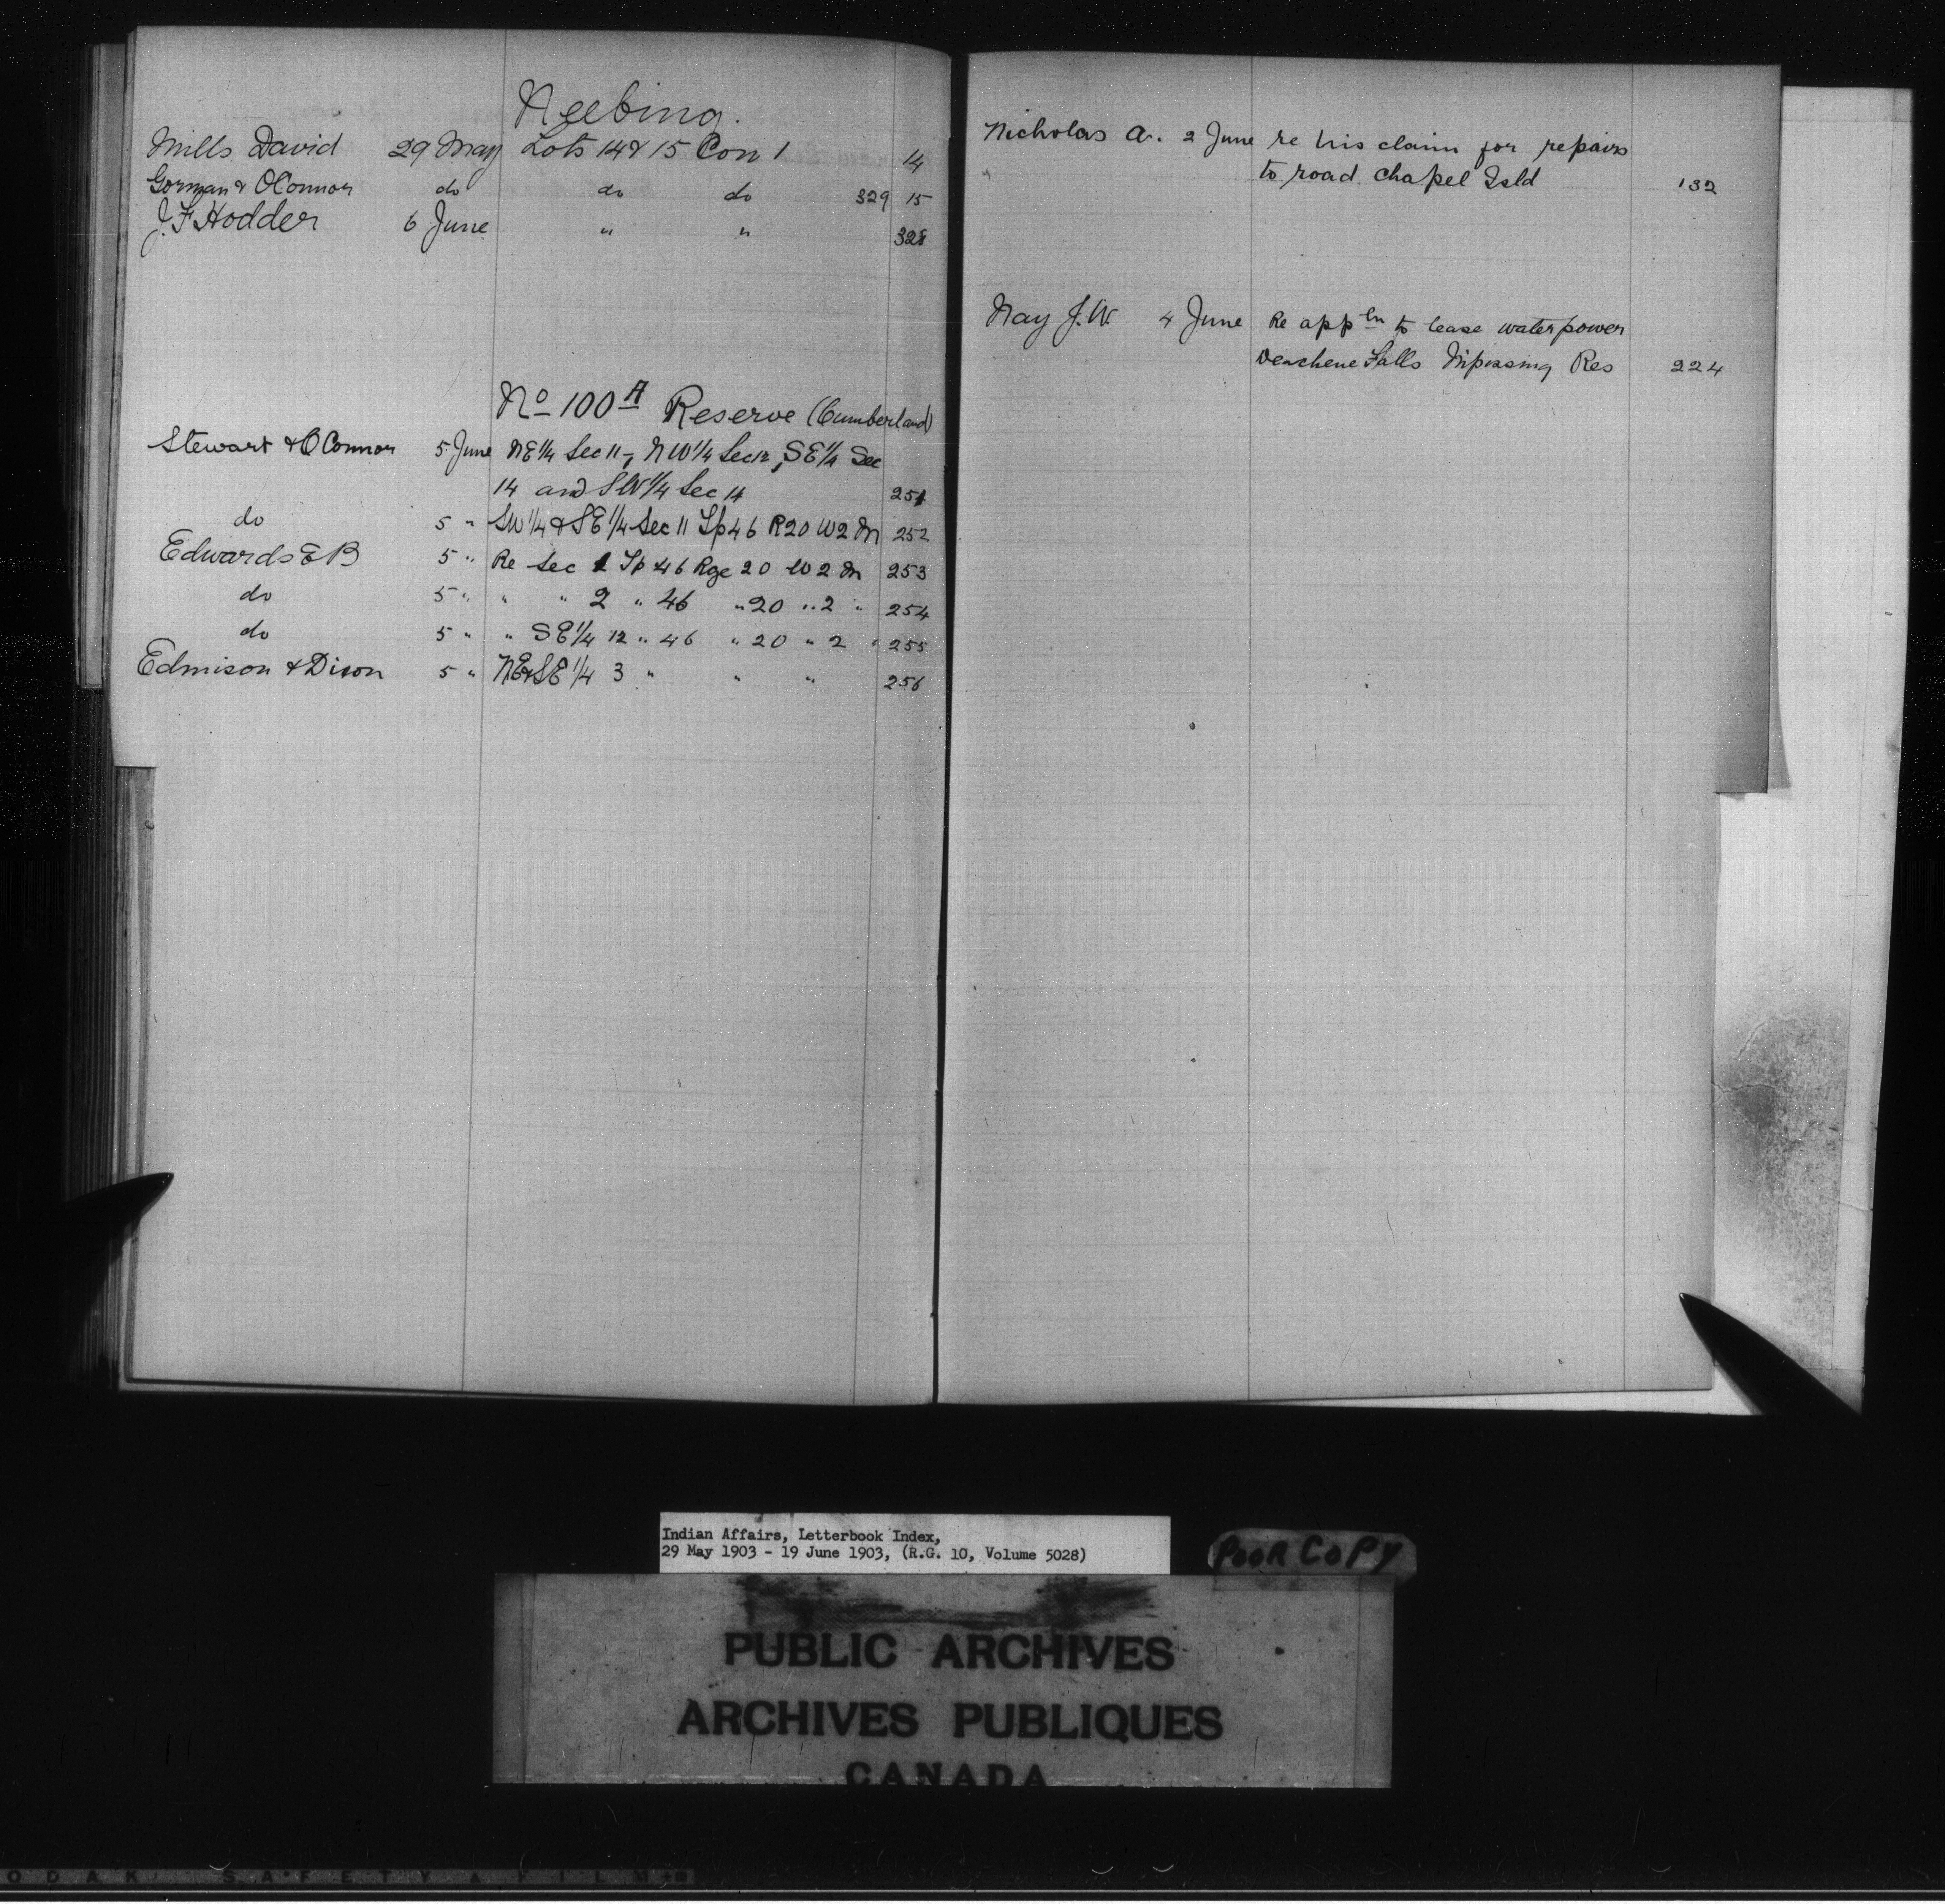 Neebing.
Mills David 29 May Lots 14 & 15 Con 1 14
Gorman & OConnor do do do 329 15
J.F Hodder 6 June " " 328
No 100 A Reserve (Cumberland)
Stewart & OConnor 5 June NE 1/4 Sec 11, NW 1/4 Sec 12, SE 1/4 Sec
14 and SW 1/4 Sec 14 251
do 5 " SW 1/4 & SE 1/4 Sec 11 Tp 46 R 20 W 2 M 252
Edwards E B 5 " Re Sec 1 Tp 46 Rge 20 W 2 M 253
do 5 " " " 2 " 46 " 20 " 2 " 254
do 5 " " SE 1/4 12 " 46 " 20 " 2 " 255
Edmison & Dixon 5 " NE & SE 1/4 3 " " " 256
Nicholas A. 2 June re his claim for repairs
to road. Chapel Isld 132
Nay J.W. 4 June Re appln to lease waterpower
Falls Nipissing Res 224
Indian Affairs, Letterbook Index,
29 May 1903 - 19 June 1903, (R.G. 10, Volume 5028)
POOR COPY
PUBLIC ARCHIVES
ARCHIVES PUBLIQUES
CANADA
ODAK SAFETY FILM